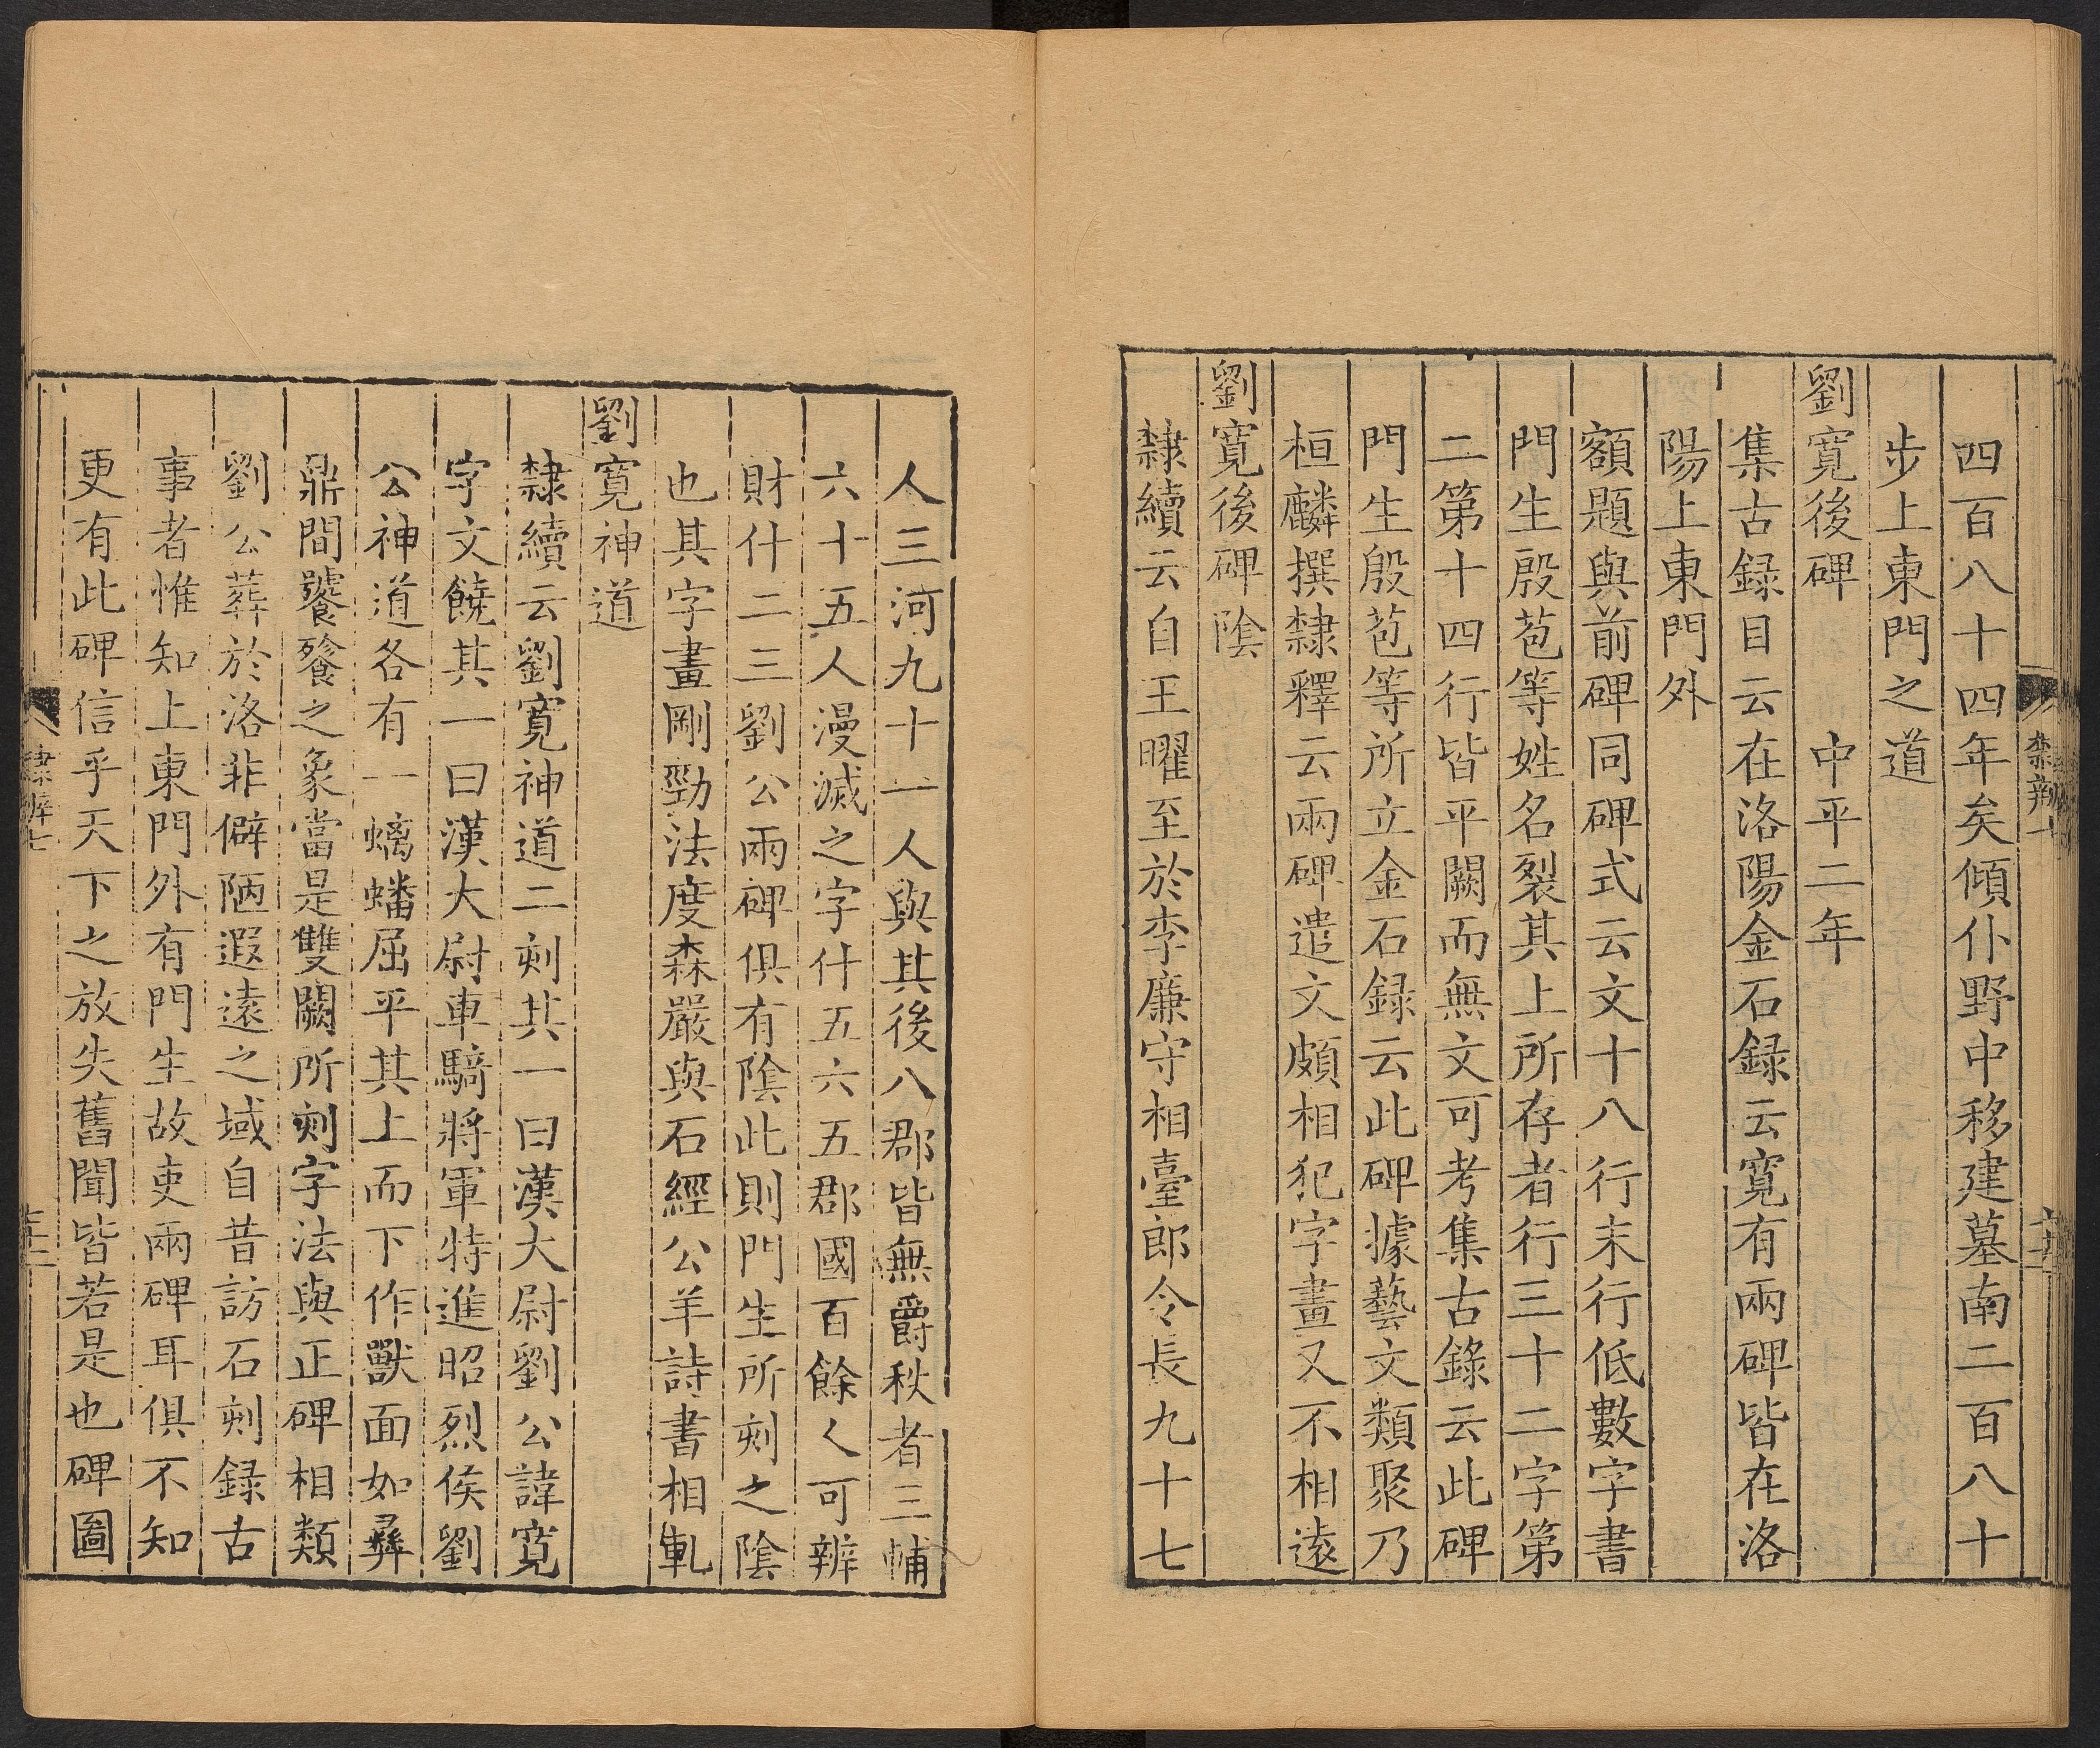 四百八十四年矣傾仆野中移建墓南二百八十
步上東門之道
劉寬後碑　中平二年
集古録目云在洛陽金石録云寬有兩碑皆在洛
陽上東門外
額題與前碑同碑式云文十八行行末行低數字書
門生殷苞等姓名裂其上所存者行三十二字第
二第十四行皆平闕而無文可考集古錄云此碑
門生殷苞等所立金石録云此碑據藝文類聚乃
桓麟撰隸釋云兩碑遣文頗相犯字畫又不相遠
劉寬後碑陰
隸續云自王曜至於李廉守相臺郎令長九十七
人三河九十一人與其後八郡皆無爵秩者三輔
六十五人漫滅之字什五六五郡國百餘人可辨
財什二三劉公兩碑俱有陰此則門生所刻之陰
也其字畫剛勁法度森嚴與石經公羊詩書相軋
劉寬神道
隸續云劉寬神道二刻其一曰漢大尉劉公諱寬
字文饒其一曰漢大尉車騎將軍特進昭烈侯劉
公神道各有一螭蟠屈平其上而下作獸面如彝
鼎間饕餮之象當是雙闕所刻字法與正碑相類
劉公葬於洛非僻陋遐遠之域自昔訪石刻録古
事者惟知上東門外有門生故吏兩碑耳俱不知
更有此碑信乎天下之放失舊聞皆若是也碑圖
隸辨七